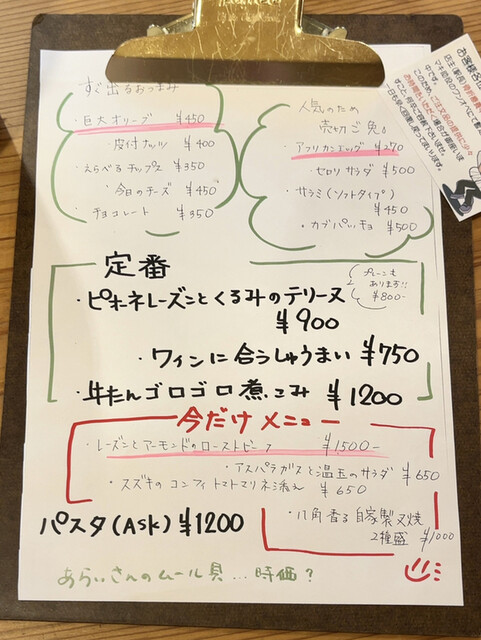 すぐ出るおつまみ
・巨大オリーブ ¥450
皮付ナッツ ¥400
えらべるチップス ¥350
今日のチーズ ¥450
チョコレート ¥350
人気のため
売切ご免。
アフリカンエッグ ¥270
・セロリサラダ ¥500
・サラミ(ソフトタイプ)
¥450
・カブパッチョ ¥500
定番
プレーンも
あります!!
¥800-
・ピオーネレーズンとくるみのテリーヌ
¥900
・ワインに合うしゅうまい ¥750
・牛たんゴロゴロ煮こみ ¥1200
今だけメニュー
・レーズンとアーモンドのローストビーフ ¥1500-
・アスパラガスと温玉のサラダ ¥650
・スズキのコンフィトマトマリネ添え ¥650
パスタ(ASK) ¥1200
・八角香る自家製叉焼
2種盛 ¥1000
あらいさんのムール貝...時価?
お客様各位